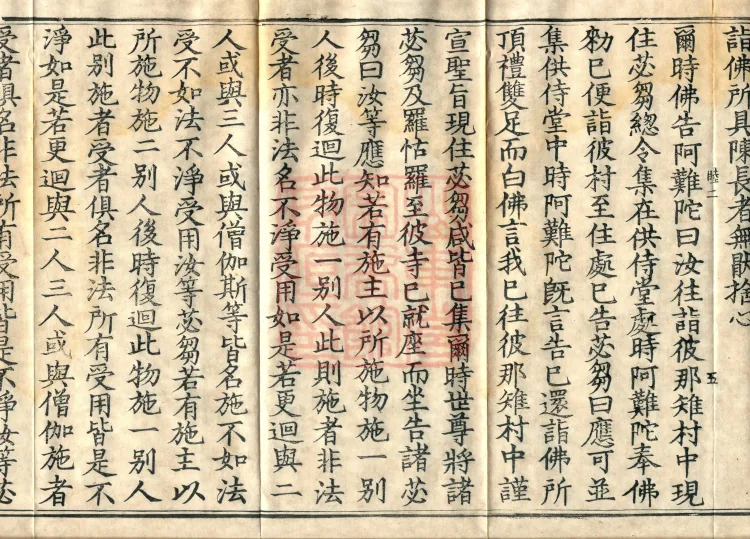 詣佛所具陳長者無猒捨心
睦二
五
爾時佛告阿難陀曰汝往詣彼那雉村中現
住苾芻總令集在供侍堂處時阿難陀奉佛
勑已便詣彼村至住處已告苾芻曰應可並
集供侍堂中時阿難陀旣言告已還詣佛所
頂禮雙足而白佛言我已往彼那雉村中謹
宣聖旨現住苾芻咸皆已集爾時世尊將諸
苾芻及羅怙羅至彼寺已就座而坐告諸苾
芻曰汝等應知若有施主以所施物施一別
人後時復迴此物施一別人此則施者非法
受者亦非法名不淨受用如是若更迴與二
人或與三人或與僧伽斯等皆名施不如法
受不如法不淨受用汝等苾芻若有施主以
所施物施二別人後時復迴此物施一別人
此別施者受者俱名非法所有受用皆是不
淨如是若更迴與二人三人或與僧伽施者
受者俱名非法所有受用皆是不淨汝等苾